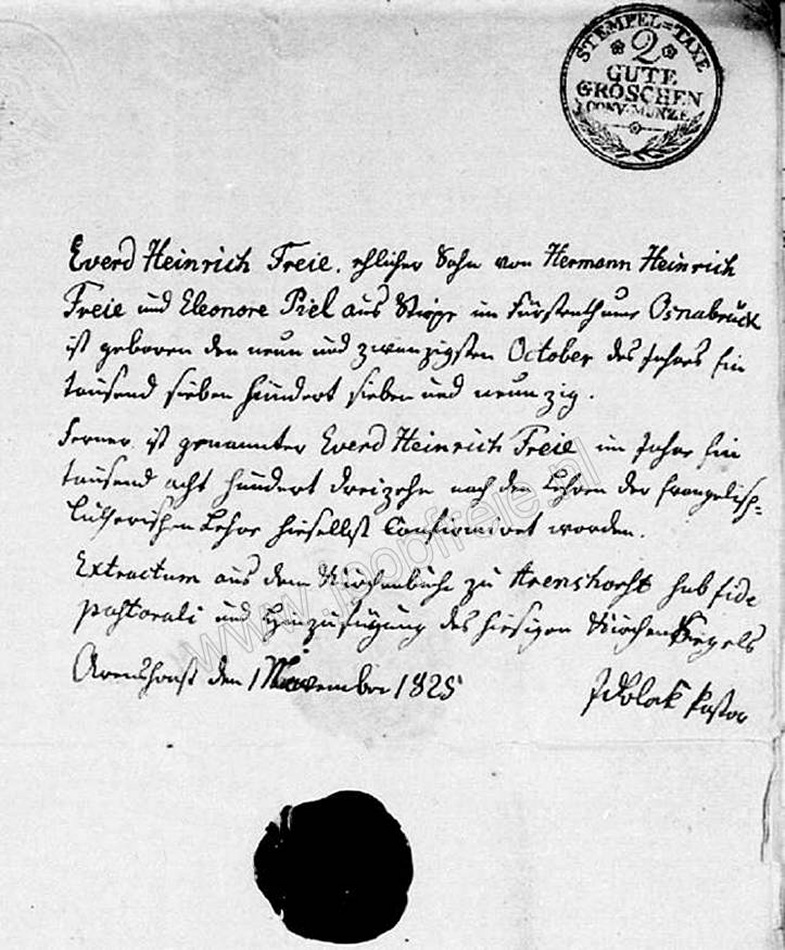 STEMPEL=TAXE
2
GUTE
GROSCHEN
CONV. MÜNZE
Everd Heinrich Freie, ehlicher Sohn von Hermann Heinrich
Freie und Eleonore Piel aus Stirpe im Fürstenthume Osnabrück
ist geboren den neun und zwanzigsten October des Jahres Ein
tausend sieben hundert sieben und neunzig.
Ferner ist genannter Everd Heinrich Freie im Jahre Ein
tausend acht hundert dreizehn nach den Lehren der Evangelisch=
Lutherischen Lehre hieselbst Confirmiret worden.
Extractum aus dem Kirchenbuche zu Arenshorst sub fide
pastorali und Hinzufügung des hiesigen Kirchen Siegels
Arenshorst den 1 November 1825
Pastor
www.jbopfreie.nl